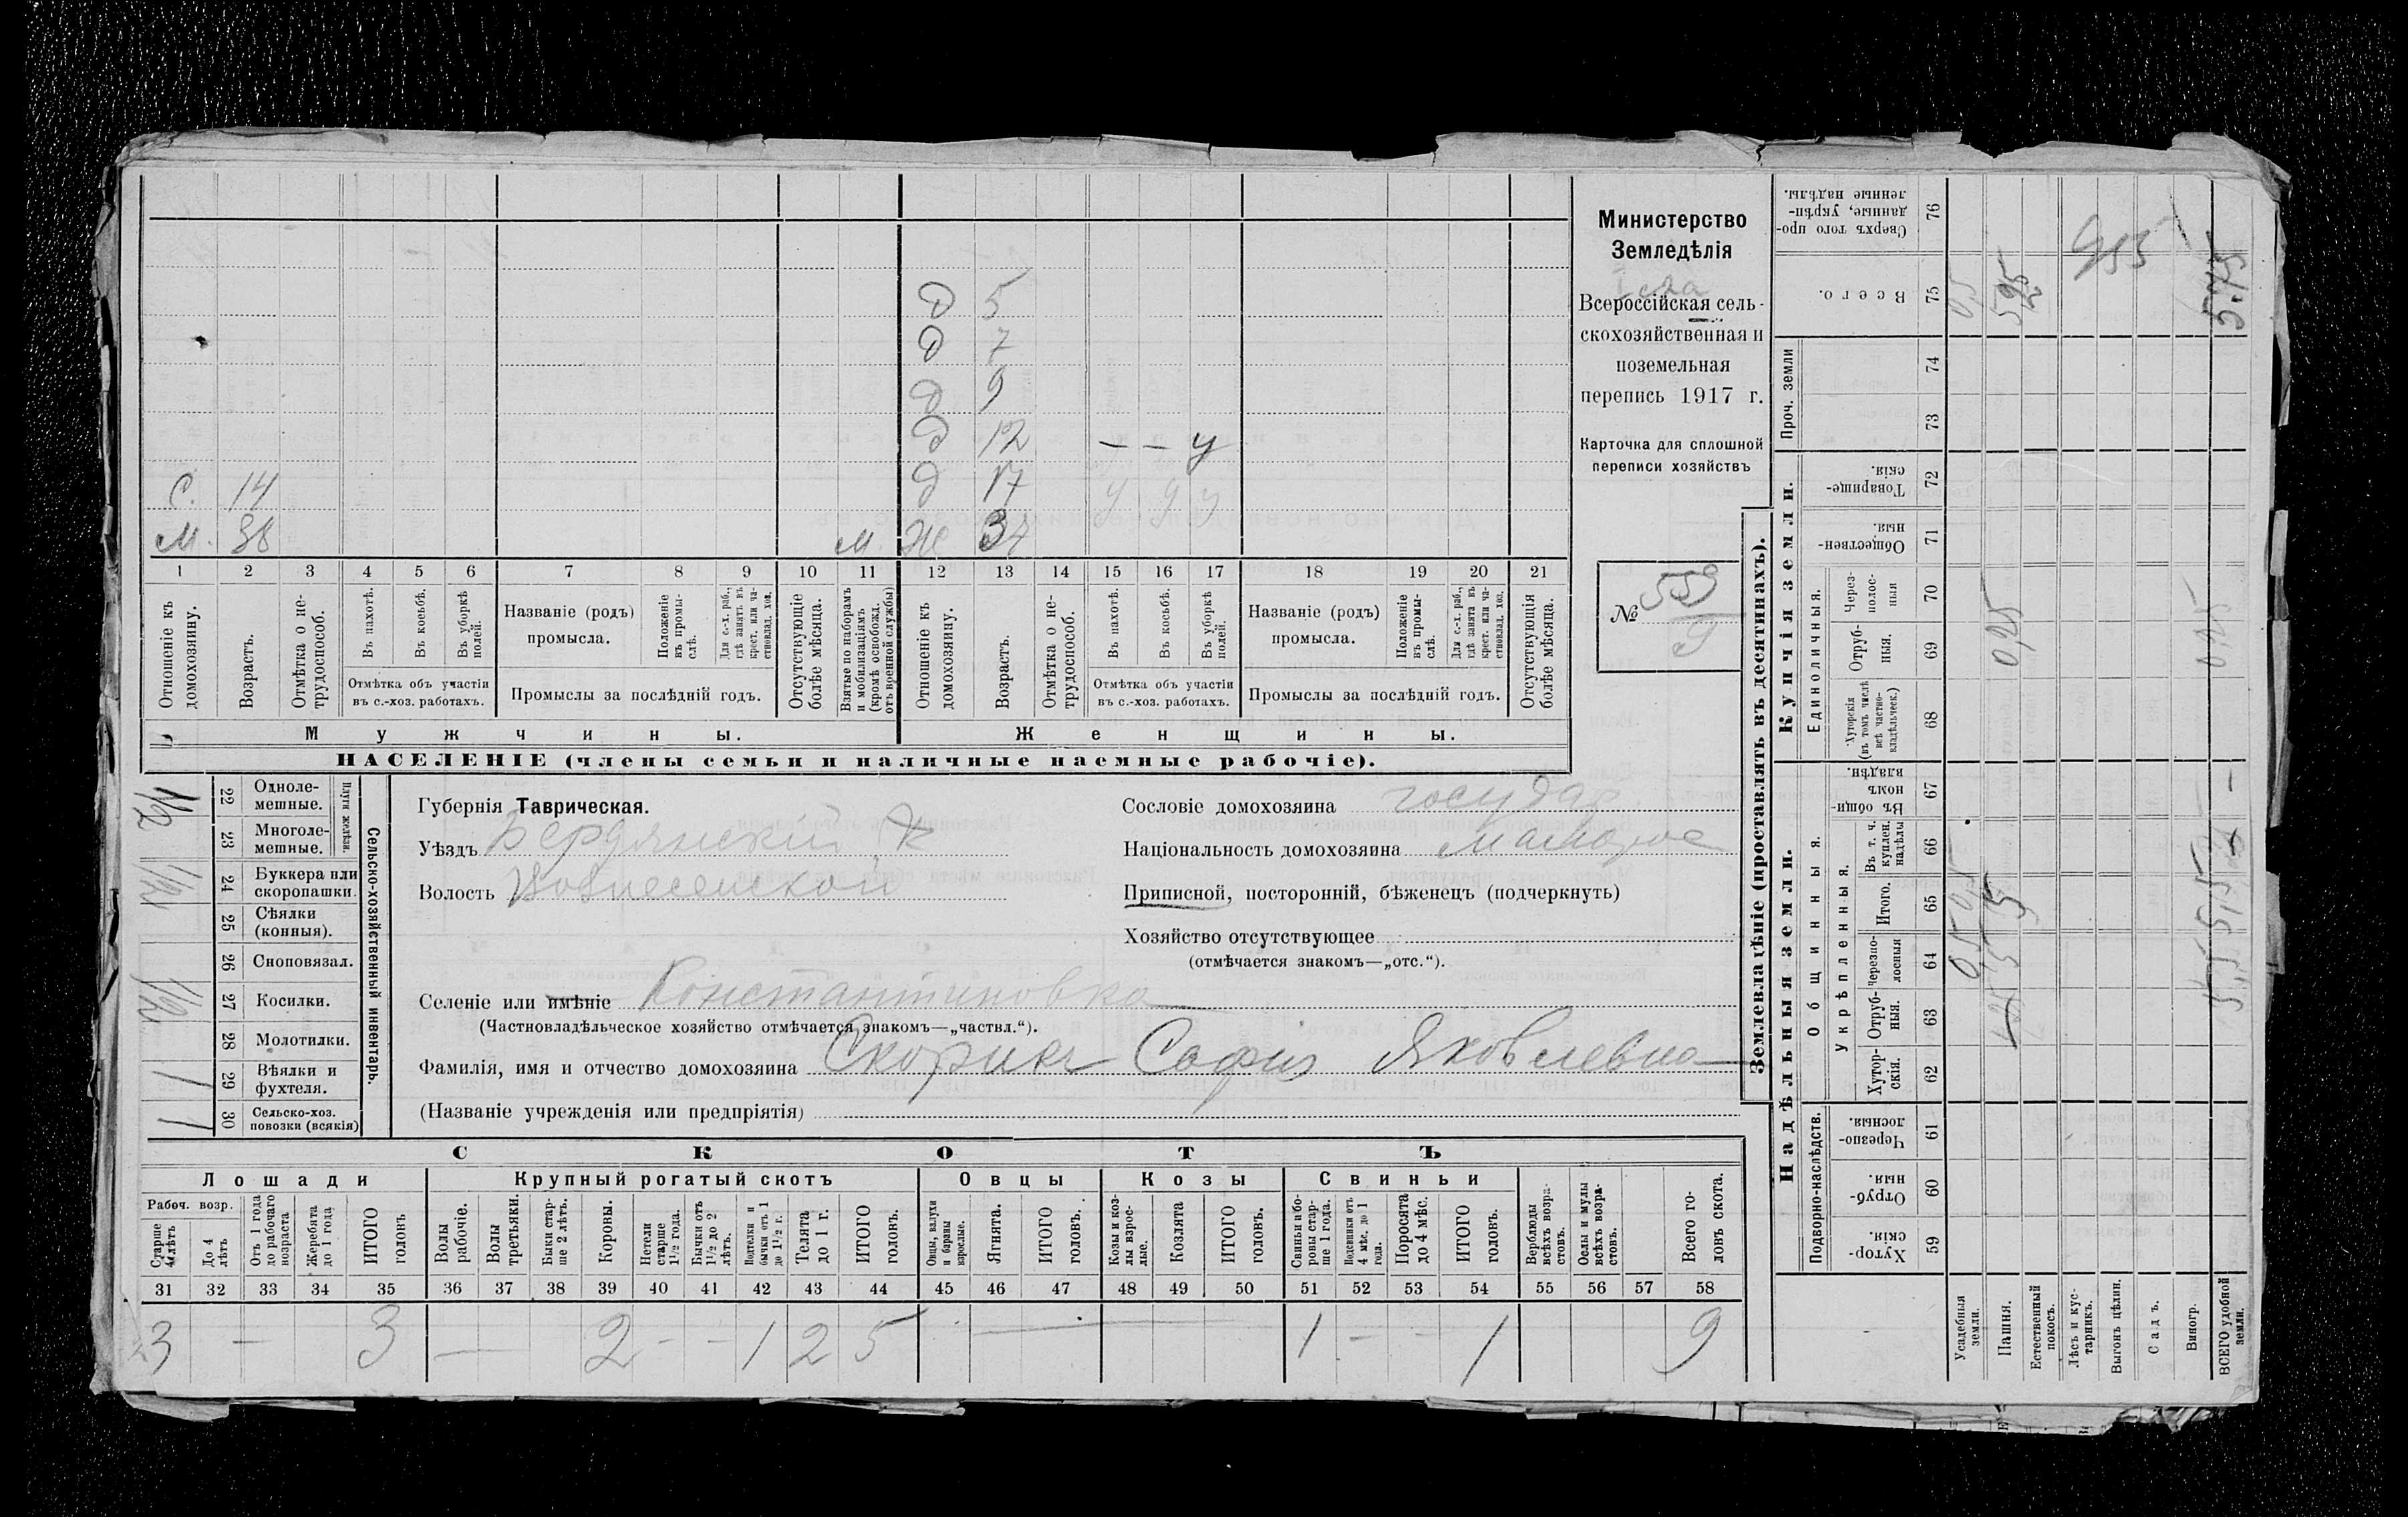 Министерство
Земледѣлія
Всероссійская сель-
скохозяйственная и
поземельная
перепись 1917 г.
Карточка для сплошной
переписи хозяйствъ
№ 559
9
д 5
д 7
д 9
д 12 — — у
С. 14 д 17 у у у
М. 38 м. Ж 37
1 2 3 4 5 6 7 8 9 10 11 12 13 14 15 16 17 18 19 20 21
Отношеніе къ домохозяину.
Возрастъ.
Отмѣтка о не-трудоспособ.
Въ пахотѣ.
Въ косьбѣ.
Въ уборкѣ полей.
Отмѣтка объ участіи
въ с.-хоз. работахъ.
Названіе (родъ)
промысла.
Положеніе въ промы-слѣ.
Для с.-х. раб., гдѣ занятъ въ крест. или ча-стновлад. хоз.
Промыслы за послѣдній годъ.
Отсутствующіе болѣе мѣсяца.
Взятые по наборамъ и мобилизаціямъ (кромѣ освобожд. отъ военной службы)
Отношеніе къ домохозяину.
Возрастъ.
Отмѣтка о не-трудоспособ.
Въ пахотѣ.
Въ косьбѣ.
Въ уборкѣ полей.
Отмѣтка объ участіи
въ с.-хоз. работахъ.
Названіе (родъ)
промысла.
Положеніе въ промы-слѣ.
Для с.-х. раб., гдѣ занята въ крест. или ча-стновлад. хоз.
Промыслы за послѣдній годъ.
Отсутствующія болѣе мѣсяца.
Мужчины. Женщины.
НАСЕЛЕНІЕ (члены семьи и наличные наемные рабочіе).
Сельско-хозяйственный инвентарь.
Плуги желѣзн.
22 Одноле-мешные.
23 Многоле-мешные.
24 Буккера или скоропашки.
25 Сѣялки (конныя).
26 Сноповязал.
27 Косилки.
28 Молотилки.
29 Вѣялки и фухтеля. 1
30 Сельско-хоз. повозки (всякія) 1
Губернія Таврическая.
Уѣздъ Бердянскій
Волость Вознесенской
Сословіе домохозяина государ.
Національность домохозяина малорос
Приписной, посторонній, бѣженецъ (подчеркнуть)
Хозяйство отсутствующее
(отмѣчается знакомъ—„отс.“).
Селеніе или имѣніе Константиновка
(Частновладѣльческое хозяйство отмѣчается знакомъ—„частвл.“).
Фамилія, имя и отчество домохозяина Скорикъ Софія Яковлевна
(Названіе учрежденія или предпріятія)
СКОТЪ
Лошади Крупный рогатый скотъ Овцы Козы Свиньи
Рабоч. возр.
Старше 4 лѣтъ
До 4 лѣтъ
Отъ 1 года до рабочаго возраста
Жеребята до 1 года
ИТОГО головъ
Волы рабочіе.
Волы третьяки.
Быки стар-ше 2 лѣтъ.
Коровы.
Нетели старше 1½ года.
Бычки отъ 1½ до 2 лѣтъ.
Подтелки и бычки отъ 1 до 1½ г.
Телята до 1 г.
ИТОГО головъ.
Овцы, валухи и бараны взрослые.
Ягнята.
ИТОГО головъ.
Козы и коз-лы взрос-лые.
Козлята
ИТОГО головъ.
Свиньи и бо-ровы стар-ше 1 года.
Подсвинки отъ 4 мѣс. до 1 года.
Поросята до 4 мѣс.
ИТОГО головъ.
Верблюды всѣхъ возра-стовъ.
Ослы и мулы всѣхъ возра-стовъ.
Всего го-ловъ скота.
31 32 33 34 35 36 37 38 39 40 41 42 43 44 45 46 47 48 49 50 51 52 53 54 55 56 57 58
3 — 3 — 2 - - 1 2 5 — 1 — - 1 9
Землевладѣніе (проставлять въ десятинахъ).
Надѣльныя земли. Купчія земли. Проч. земли
Подворно-наслѣдств.
Общинныя.
Укрѣпленныя.
Единоличныя.
Хутор-скія. 59
Отруб-ныя. 60
Черезпо-лосныя. 61
Хутор-скія. 62
Отруб-ныя. 63
Черезпо-лосныя 64
Итого. 65
Въ т. ч. куплен. надѣлы 66
Въ общи-номъ владѣн. 67
Хуторскія (въ томъ числѣ всѣ частно-владѣльческ.) 68
Отруб-ныя. 69
Через-полос-ныя 70
Обществен-ныя. 71
Товарище-скія. 72
73
74
Всего. 75
Сверхъ того про-данные, укрѣп-ленные надѣлы. 76
Усадебныя земли. 0,5 0,5 0,5
Пашня. 5 5 0,25
Естественный покосъ.
Лѣсъ и кус-тарникъ.
Выгонъ цѣлин.
Садъ.
Виногр.
ВСЕГО удобной земли. 5,5 5,5 0,25 5,75